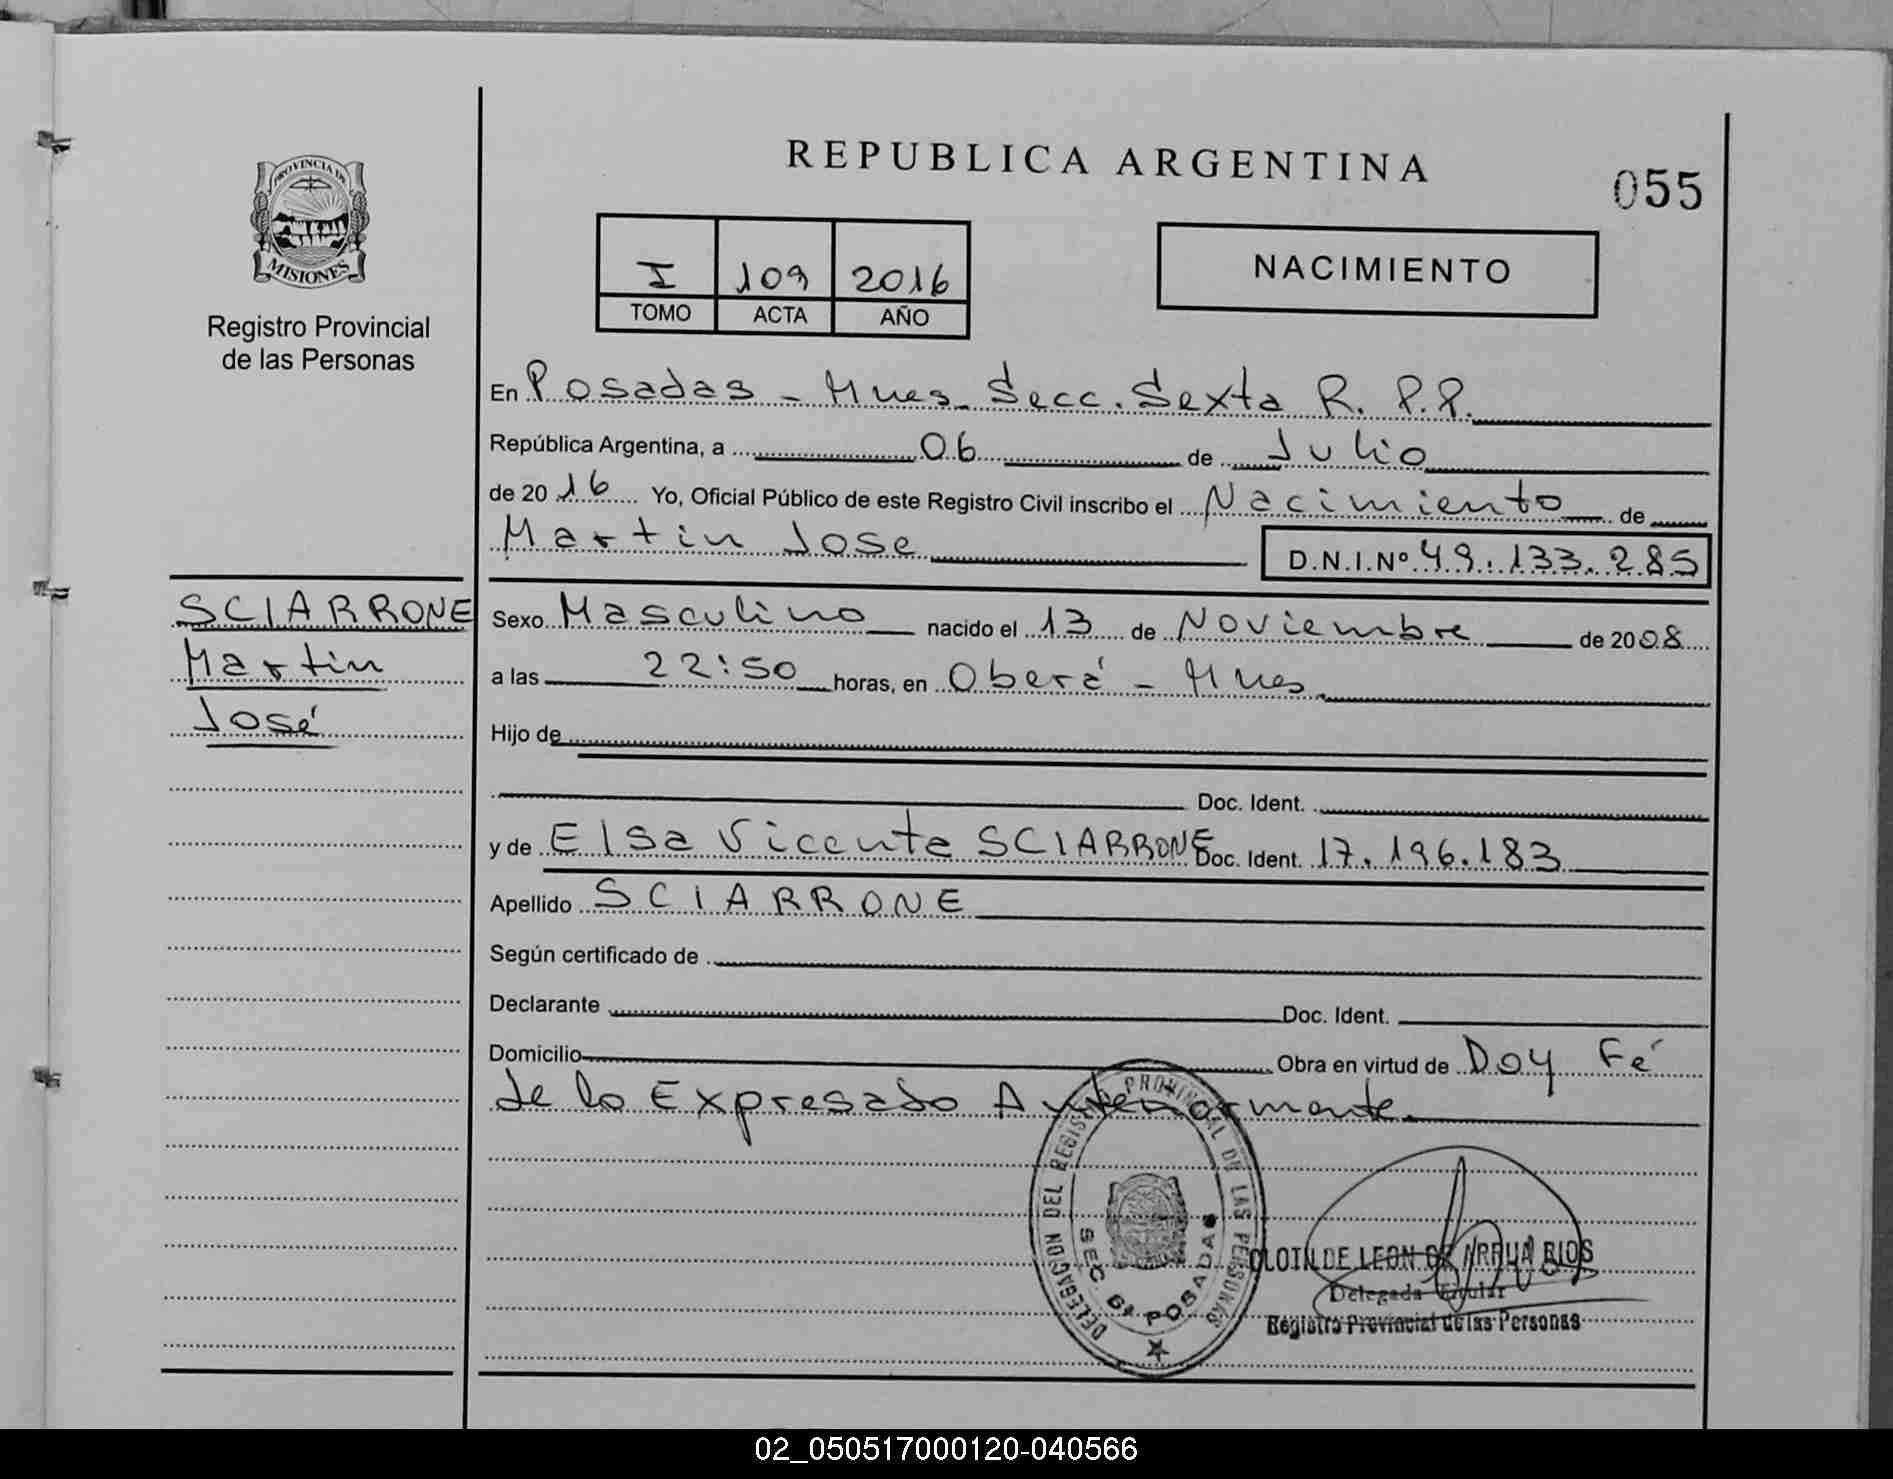 PROVINCIA DE
MISIONES
Registro Provincial
de las Personas
REPUBLICA ARGENTINA
055
I 109 2016
TOMO ACTA AÑO
NACIMIENTO
En Posadas - Mnes. Secc. Sexta R. P.P.
República Argentina, a 06 de Julio
de 20 16 Yo, Oficial Público de este Registro Civil inscribo el Nacimiento de
Martin Jose D.N.I.Nº 49.133.285
SCIARRONE
Martin
José
Sexo Masculino nacido el 13 de Noviembre de 2008
a las 22:50 horas, en Oberá - Mnes.
Hijo de
Doc. Ident.
y de Elsa Vicenta SCIARRONE Doc. Ident. 17.196.183
Apellido SCIARRONE
Según certificado de
Declarante Doc. Ident.
Domicilio Obra en virtud de Doy Fé
de lo Expresado Anteriormente.
DELEGACION DEL REGISTRO PROVINCIAL DE LAS PERSONAS
SEC. 6ª POSADAS
CLOTILDE LEON DE RIOS
Delegada Titular
Registro Provincial de las Personas
02_050517000120-040566